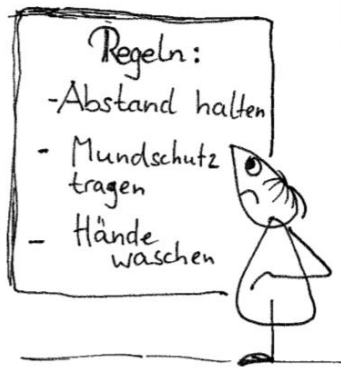 Regeln:
- Abstand halten
- Mundschutz
tragen
- Hände
waschen